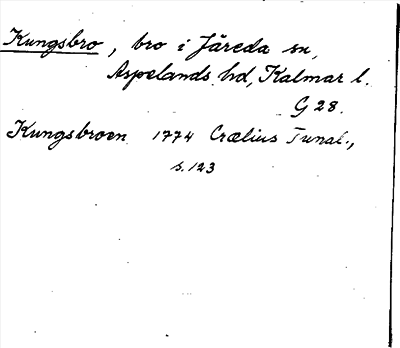 Kungsbro, bro i Järeda sn,
Aspelands hd, Kalmar l.
G 28.
Kungsbroen 1774 Crælius Tunal.,
s. 123